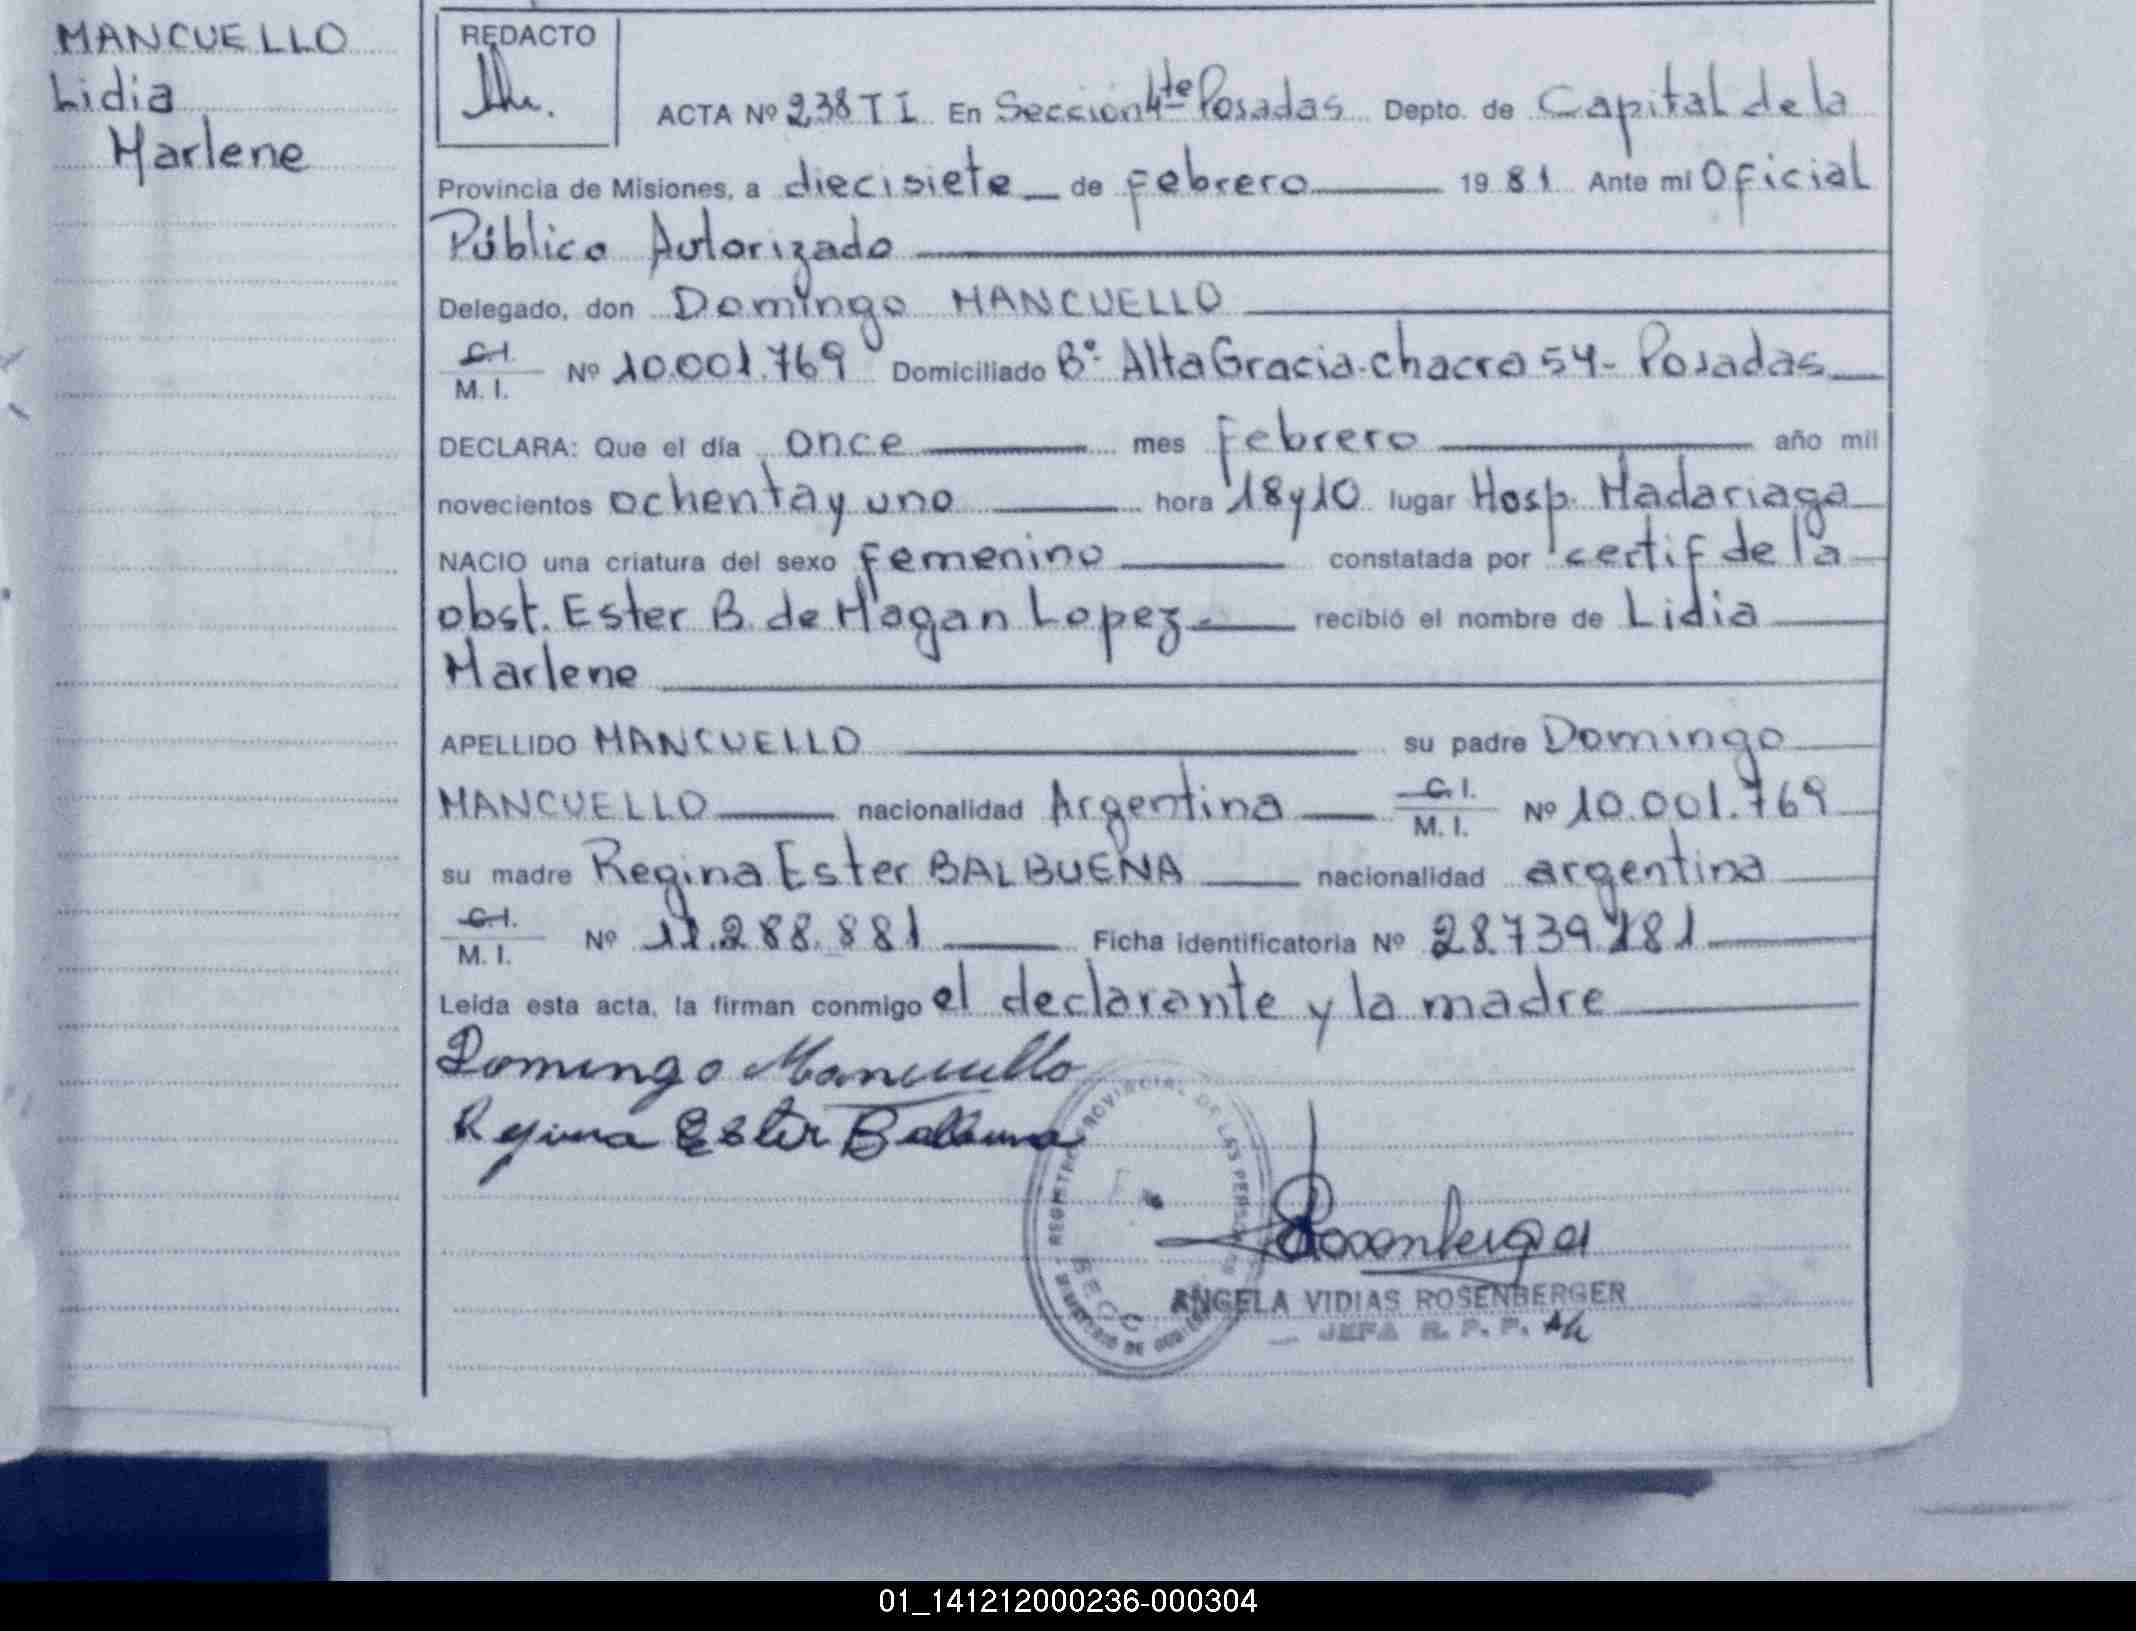 MANCUELLO
Lidia
Marlene
REDACTO
ACTA Nº 238 T I En Sección 4te Posadas Depto. de Capital de la
Provincia de Misiones, a diecisiete de febrero 1981 Ante mi Oficial
Público Autorizado
Delegado, don Domingo MANCUELLO
C.I.
M. I. Nº 10.001.769 Domiciliado Bº Alta Gracia-chacra 54- Posadas
DECLARA: Que el día once mes febrero año mil
novecientos ochenta y uno hora 18 y 10 lugar Hosp. Madariaga
NACIO una criatura del sexo femenino constatada por certif de la
obst. Ester B. de Hagan Lopez recibió el nombre de Lidia
Marlene
APELLIDO MANCUELLO su padre Domingo
MANCUELLO nacionalidad Argentina C.I. M. I. Nº 10.001.769
su madre Regina Ester BALBUENA nacionalidad argentina
C.I.
M. I. Nº 11.288.881 Ficha identificatoria Nº 28.739.181
Leída esta acta, la firman conmigo el declarante y la madre
Domingo Mancuello
Regina Ester Balbuena
REGISTRO PROVINCIAL DE LAS PERSONAS
SECC
ANGELA VIDIAS ROSENBERGER
JEFA R. P. P.
01_141212000236-000304